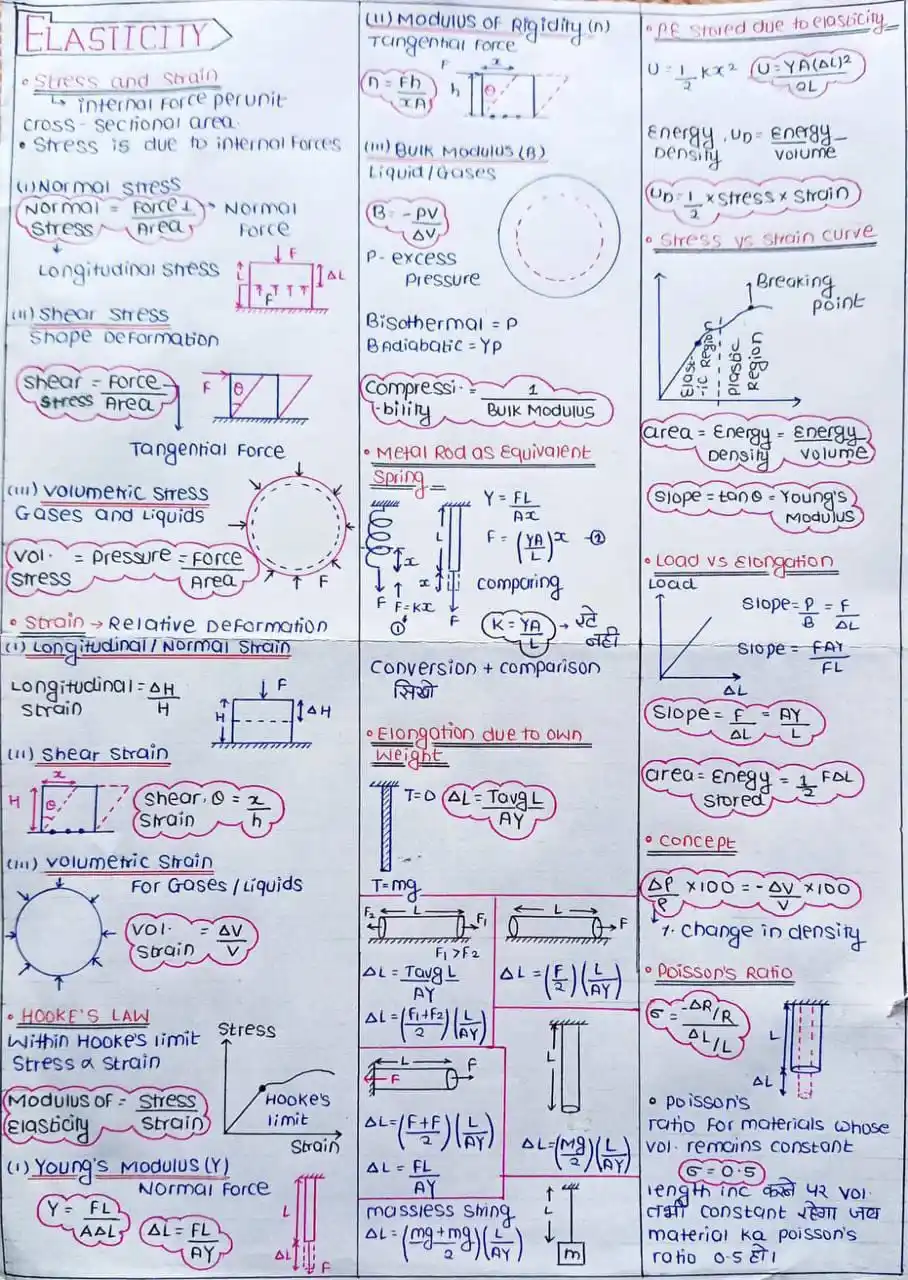 ELASTICITY
• Stress and Strain
↳ internal force per unit
cross-sectional area.
• Stress is due to internal forces
(i) Normal Stress
Normal Stress = Force ⊥ / Area → Normal Force
↓
Longitudinal Stress
L F ΔL
F
(ii) Shear Stress
Shape Deformation
Shear Stress = Force / Area
F θ
Tangential Force
(iii) Volumetric Stress
Gases and Liquids
Vol. Stress = Pressure = Force / Area
F
• Strain → Relative Deformation
(i) Longitudinal / Normal Strain
Longitudinal Strain = ΔH / H
F H ΔH
(ii) Shear Strain
x
H θ
Shear Strain, θ = x / h
(iii) Volumetric Strain
For Gases / Liquids
Vol. Strain = ΔV / V
• HOOKE'S LAW
Within Hooke's limit
Stress ∝ Strain
Modulus of Elasticity = Stress / Strain
Stress
Hooke's
limit
Strain
(i) Young's Modulus (Y)
Normal Force
Y = FL / AΔL
ΔL = FL / AY
L
ΔL F
(ii) Modulus of Rigidity (n)
Tangential Force
η = Fh / xA
F x
h θ
(iii) Bulk Modulus (B)
Liquid / Gases
B = -PV / ΔV
P - excess
Pressure
Bisothermal = P
BAdiabatic = γP
Compressi-bility = 1 / Bulk Modulus
• Metal Rod as Equivalent
Spring
L
x x
F F = kx F
①
Y = FL / Ax
F = (YA / L) x -②
comparing
K = YA / L → रटे नहीं
conversion + comparison
सिखो
• Elongation due to own
Weight
T=0
ΔL = Tavg L / AY
T=mg
F2 L F1
F1 > F2
ΔL = Tavg L / AY
ΔL = (F1+F2 / 2) (L / AY)
L F
ΔL = (F / 2) (L / AY)
L
F F
ΔL = (F+F / 2) (L / AY)
ΔL = FL / AY
L
ΔL = (Mg / 2) (L / AY)
massless string
ΔL = (mg+mg / 2) (L / AY)
L
m
• PE stored due to elasticity
U = 1/2 Kx²
U = YA(ΔL)² / 2L
Energy Density, UD = Energy / Volume
UD = 1/2 × stress × strain
• Stress vs Strain curve
Breaking
point
Elast-ic Region
Plastic Region
area = Energy Density = Energy / Volume
slope = tanθ = Young's
Modulus
• Load vs Elongation
Load
ΔL
slope = P / B = F / ΔL
slope = FAY / FL
Slope = F / ΔL = AY / L
area = Enegy stored = 1/2 FΔL
• Concept
Δρ / ρ ×100 = -ΔV / V ×100
↓
%. change in density
• Poisson's Ratio
σ = -ΔR/R / ΔL/L
L
ΔL
• Poisson's
ratio for materials whose
vol. remains constant
σ = 0.5
length inc करने पर vol.
तभी constant रहेगा जब
material ka poisson's
ratio 0.5 हो।